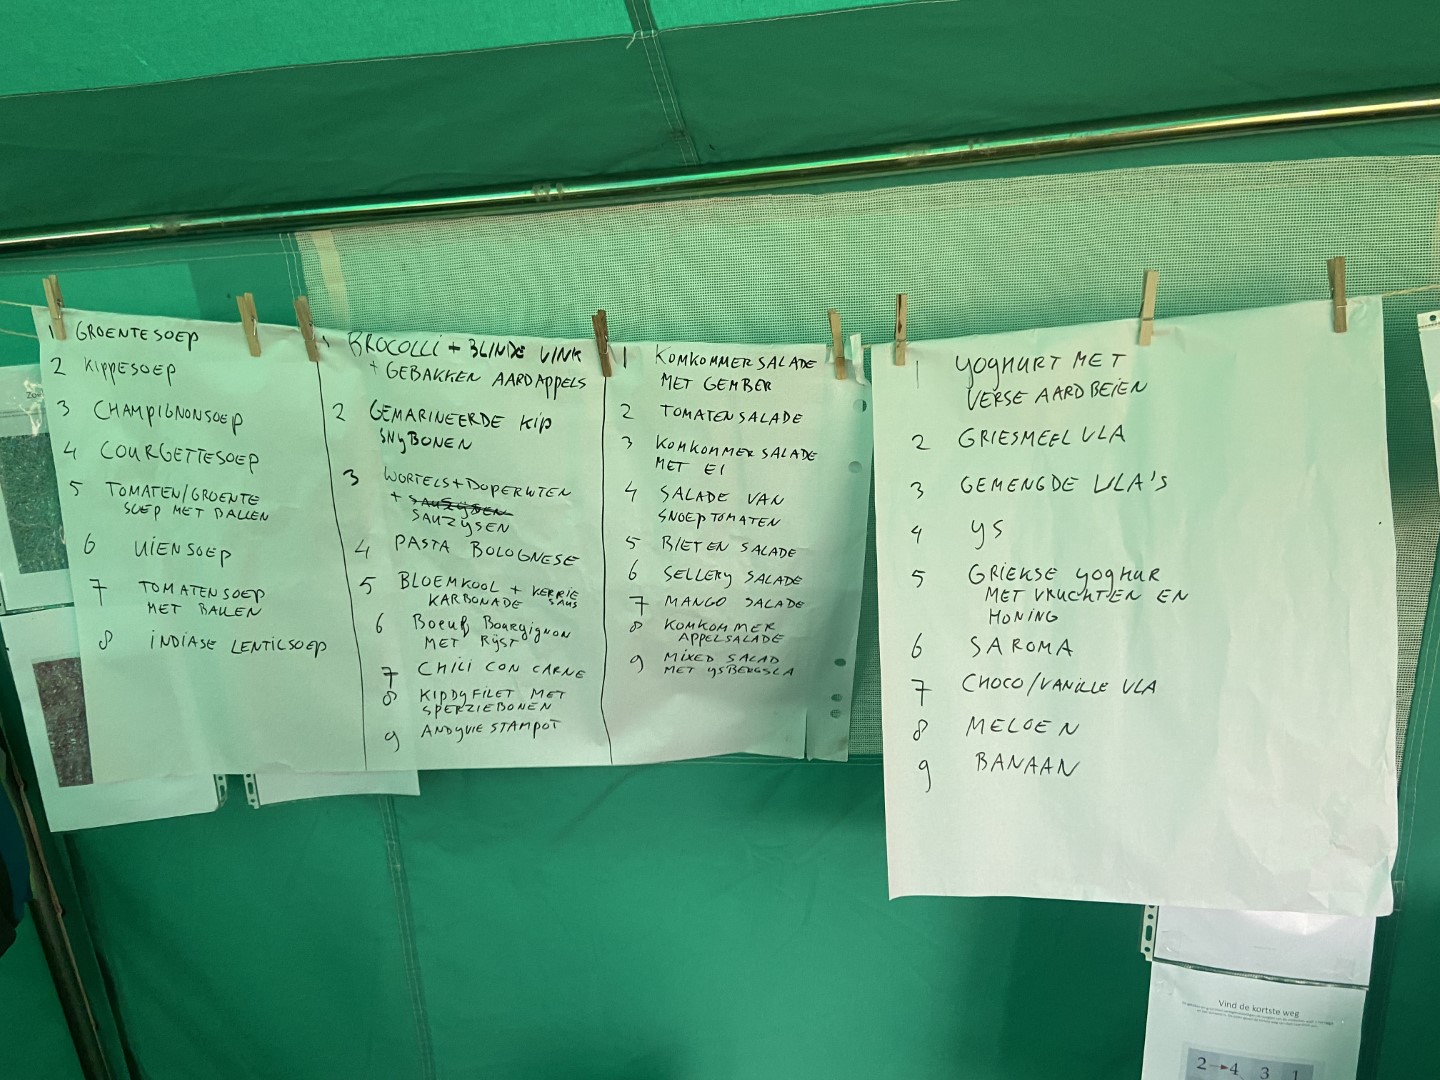 1 GROENTESOEP
2 KIPPESOEP
3 CHAMPIGNONSOEP
4 COURGETTESOEP
5 TOMATEN/GROENTE
SOEP MET BALLEN
6 UIENSOEP
7 TOMATENSOEP
MET BALLEN
8 INDIASE LENTILSOEP
1 BROCOLLI + BLINDE VINK
+ GEBAKKEN AARDAPPELS
2 GEMARINEERDE KIP
SNYBONEN
3 WORTELS+DOPERWTEN
+
SAUZYSEN
4 PASTA BOLOGNESE
5 BLOEMKOOL + KERRIE
KARBONADE SAUS
6 Boeuf Bourgignon
MET RIJST
7 CHILI CON CARNE
8 KIPDYFILET MET
SPERZIEBONEN
9 ANDYVIE STAMPOT
1 KOMKOMMER SALADE
MET GEMBER
2 TOMATEN SALADE
3 KOMKOMMER SALADE
MET EI
4 SALADE VAN
SNOEPTOMATEN
5 BIETEN SALADE
6 SELLERY SALADE
7 MANGO SALADE
8 KOMKOMMER
APPELSALADE
9 MIXED SALAD
MET YSBERGSLA
1 YOGHURT MET
VERSE AARDBEIEN
2 GRIESMEEL VLA
3 GEMENGDE VLA'S
4 YS
5 GRIEKSE YOGHUR
MET VRUCHTEN EN
HONING
6 SAROMA
7 CHOCO/VANILLE VLA
8 MELOEN
9 BANAAN
Vind de kortste weg
2 4 3 1